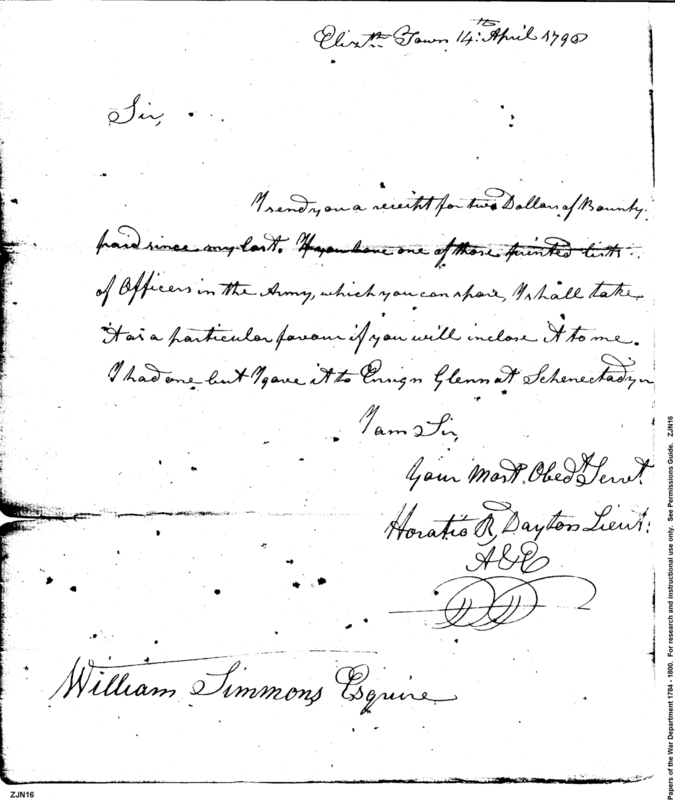 Elizth Town 14th April 1798
Sir,
I send you a receiht for two Dollars of Bounty
paid since my last. If you have one of those printed lists
of Officers in the Army, which you can spare, I shall take
it as a particular favour if you will inclose it to me.
I had one but I gave it to Ensign Glenn at Schenectady
I am Sir,
Your Most. Obedt Servt.
Horatio R, Dayton Lieut:
A&E
William Simmons Esquire
ZJN16
Papers of the War Department 1784 - 1800. For research and instructional use only. See Permissions Guide. ZJN16